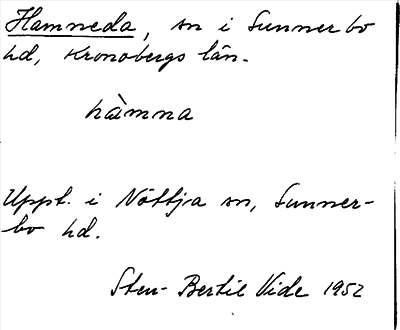 Hamneda, sn i Sunnerbo
hd, Kronobergs län.
hàmna
Uppt. i Nöttja sn, Sunner-
bo hd.
Sten-Bertil Vide 1952